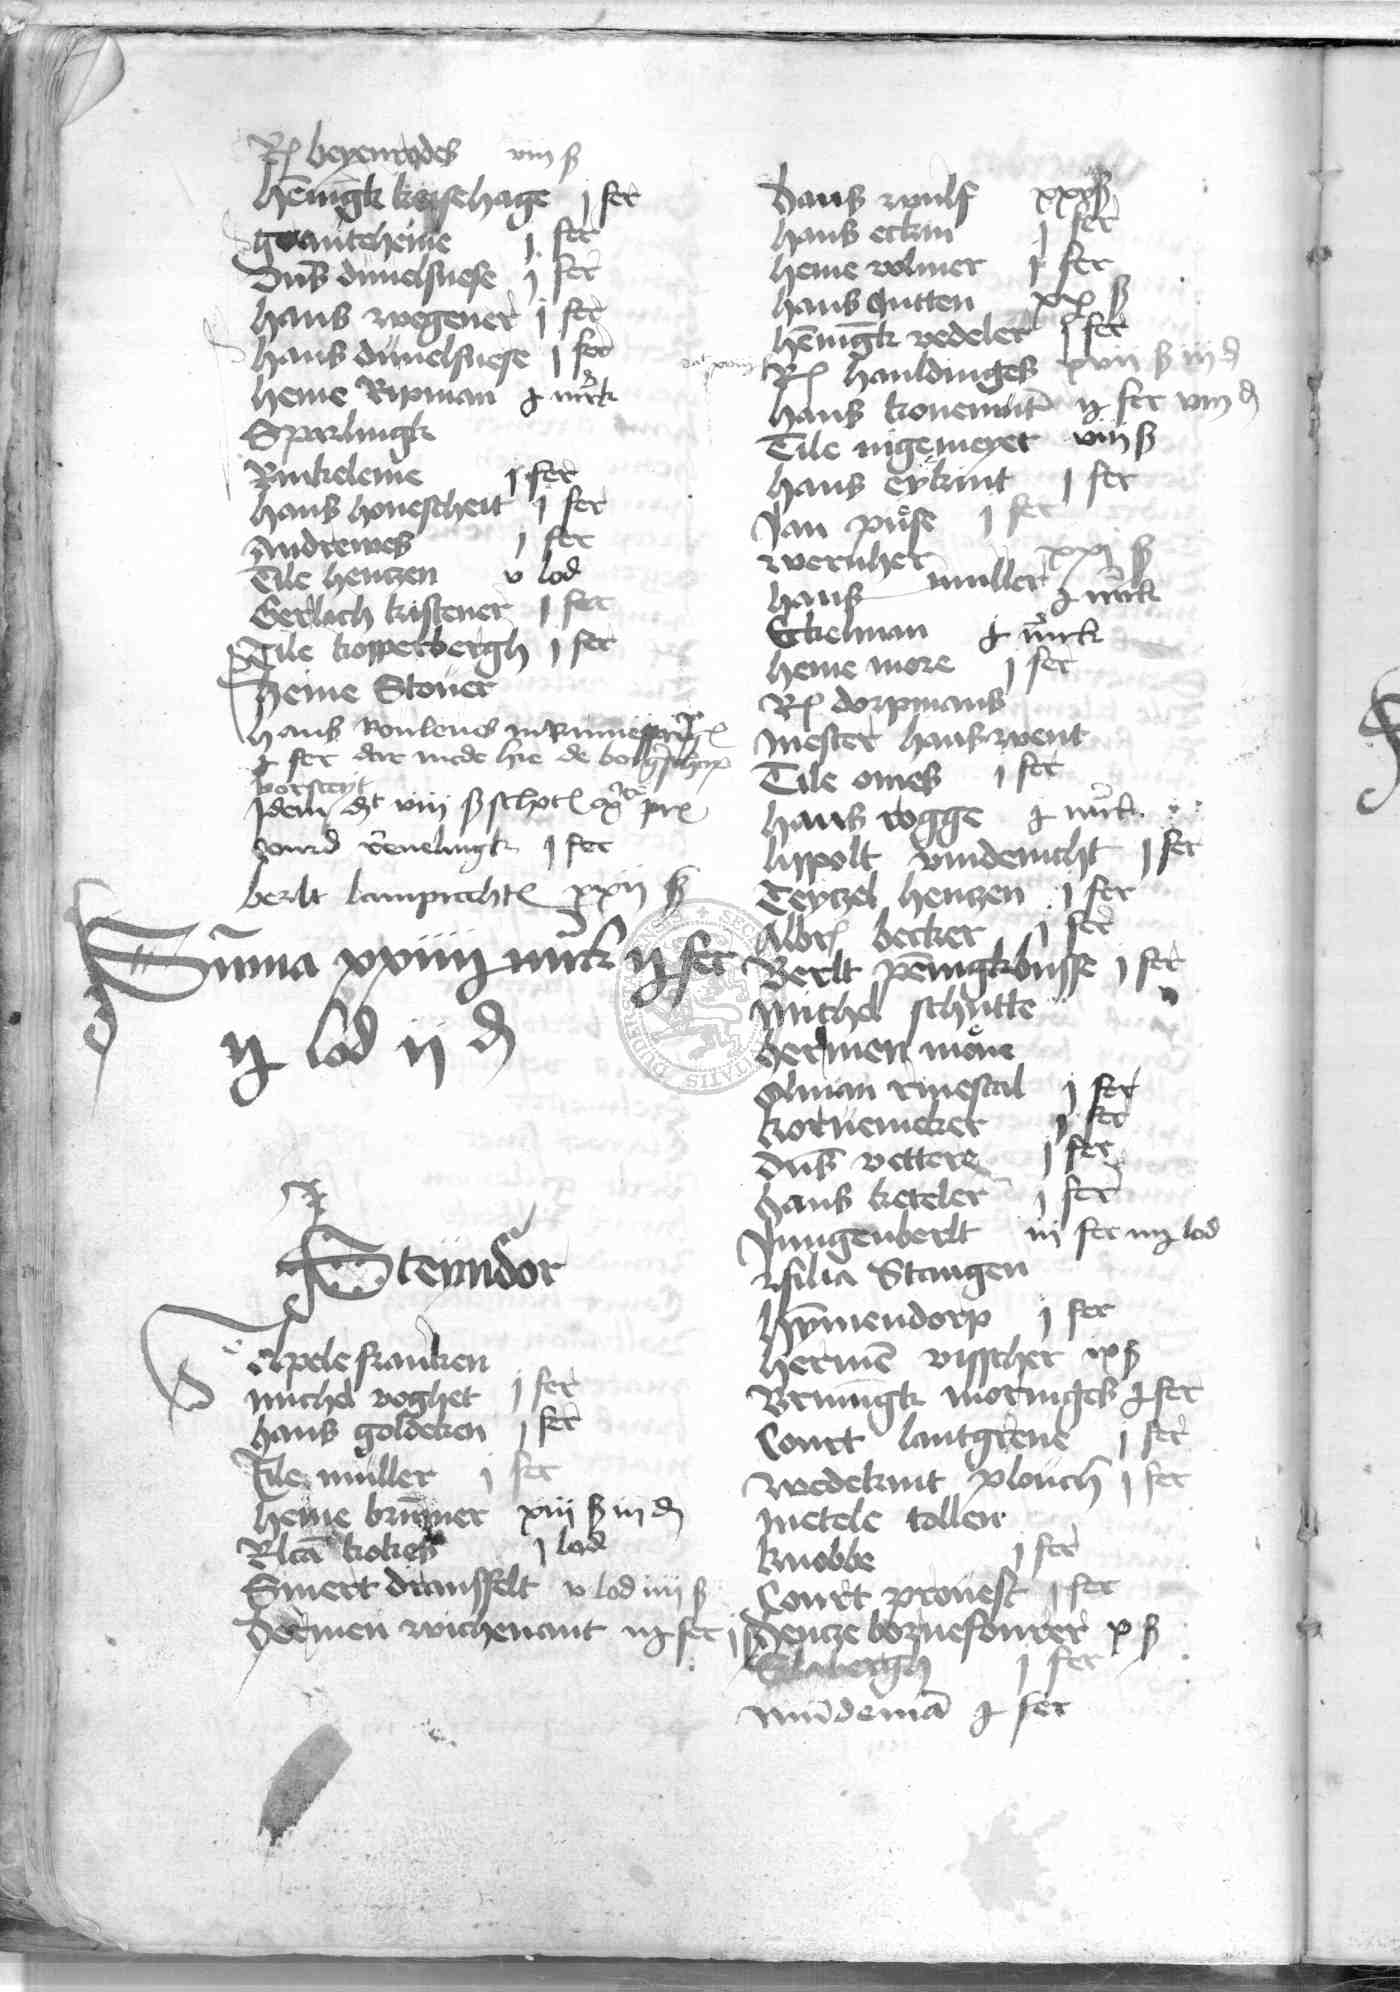 Rc beyenrodes viii ß
henigk keysehage j fer
grantzheine j fer
Hans dunelsnese j fer
hans wegener j fer
hans dunelsnese j fer
heine Ripman mrk
Sperlingk
Rinkeleine j fer
hans honescheit j fer
Andrewes j fer
Tile hentzen v lod
Gerlach kistener j fer
Tile kopperbergh j fer
heine Stover
hans
fer dar mede hie de
vorsteyt
Idem dt viii ß
Curd j fer
berlt lamprecht xxii ß
Suma xxiiii mrk ij fer
ij lod ij d
Steyndor
Apele francken
michel voghet j fer
hans goldeken j fer
Tile muller j fer
heine brumer xiii ß iii d
Rlca kokes j lod
Sivert dransfelt v lod iiii ß
Hermen wichenant iij fer j ß
Hans wulf xxx ß
hans eckin j fer
heine volmer j fer
hans Jutten xx ß
henigk vedeler j fer
Rc hauldinges xvii ß iii d
hans konemunt ij fer viii d
Tile nigemeyer viii ß
hans eykint j fer
Jan puse j fer
wernher xxi ß
hans muller mrk
Eckelman mrk
heine more j fer
Rc dorpmans
mester hans went
Tile omes j fer
hans rogge mrk
lippolt vindenicht j fer
Teyzel hentzen j fer
Albr becker j fer
Berlt penigkbusse j fer
michel schutte
hermen mone
olman rinestal j fer
kornemeker j fer
Hans vettere j fer
hans keteler j fer
Jungenberlt iij fer iij lod
ilsilia Stangen
hymendorp j fer
hermen visscher ix ß
Bruningk moringes fer
Court lantgreve j fer
wedekint plouch j fer
metele tollen
knobbe j fer
Court provest j fer
Hentze bornefourer x ß
j fer
mundeman fer